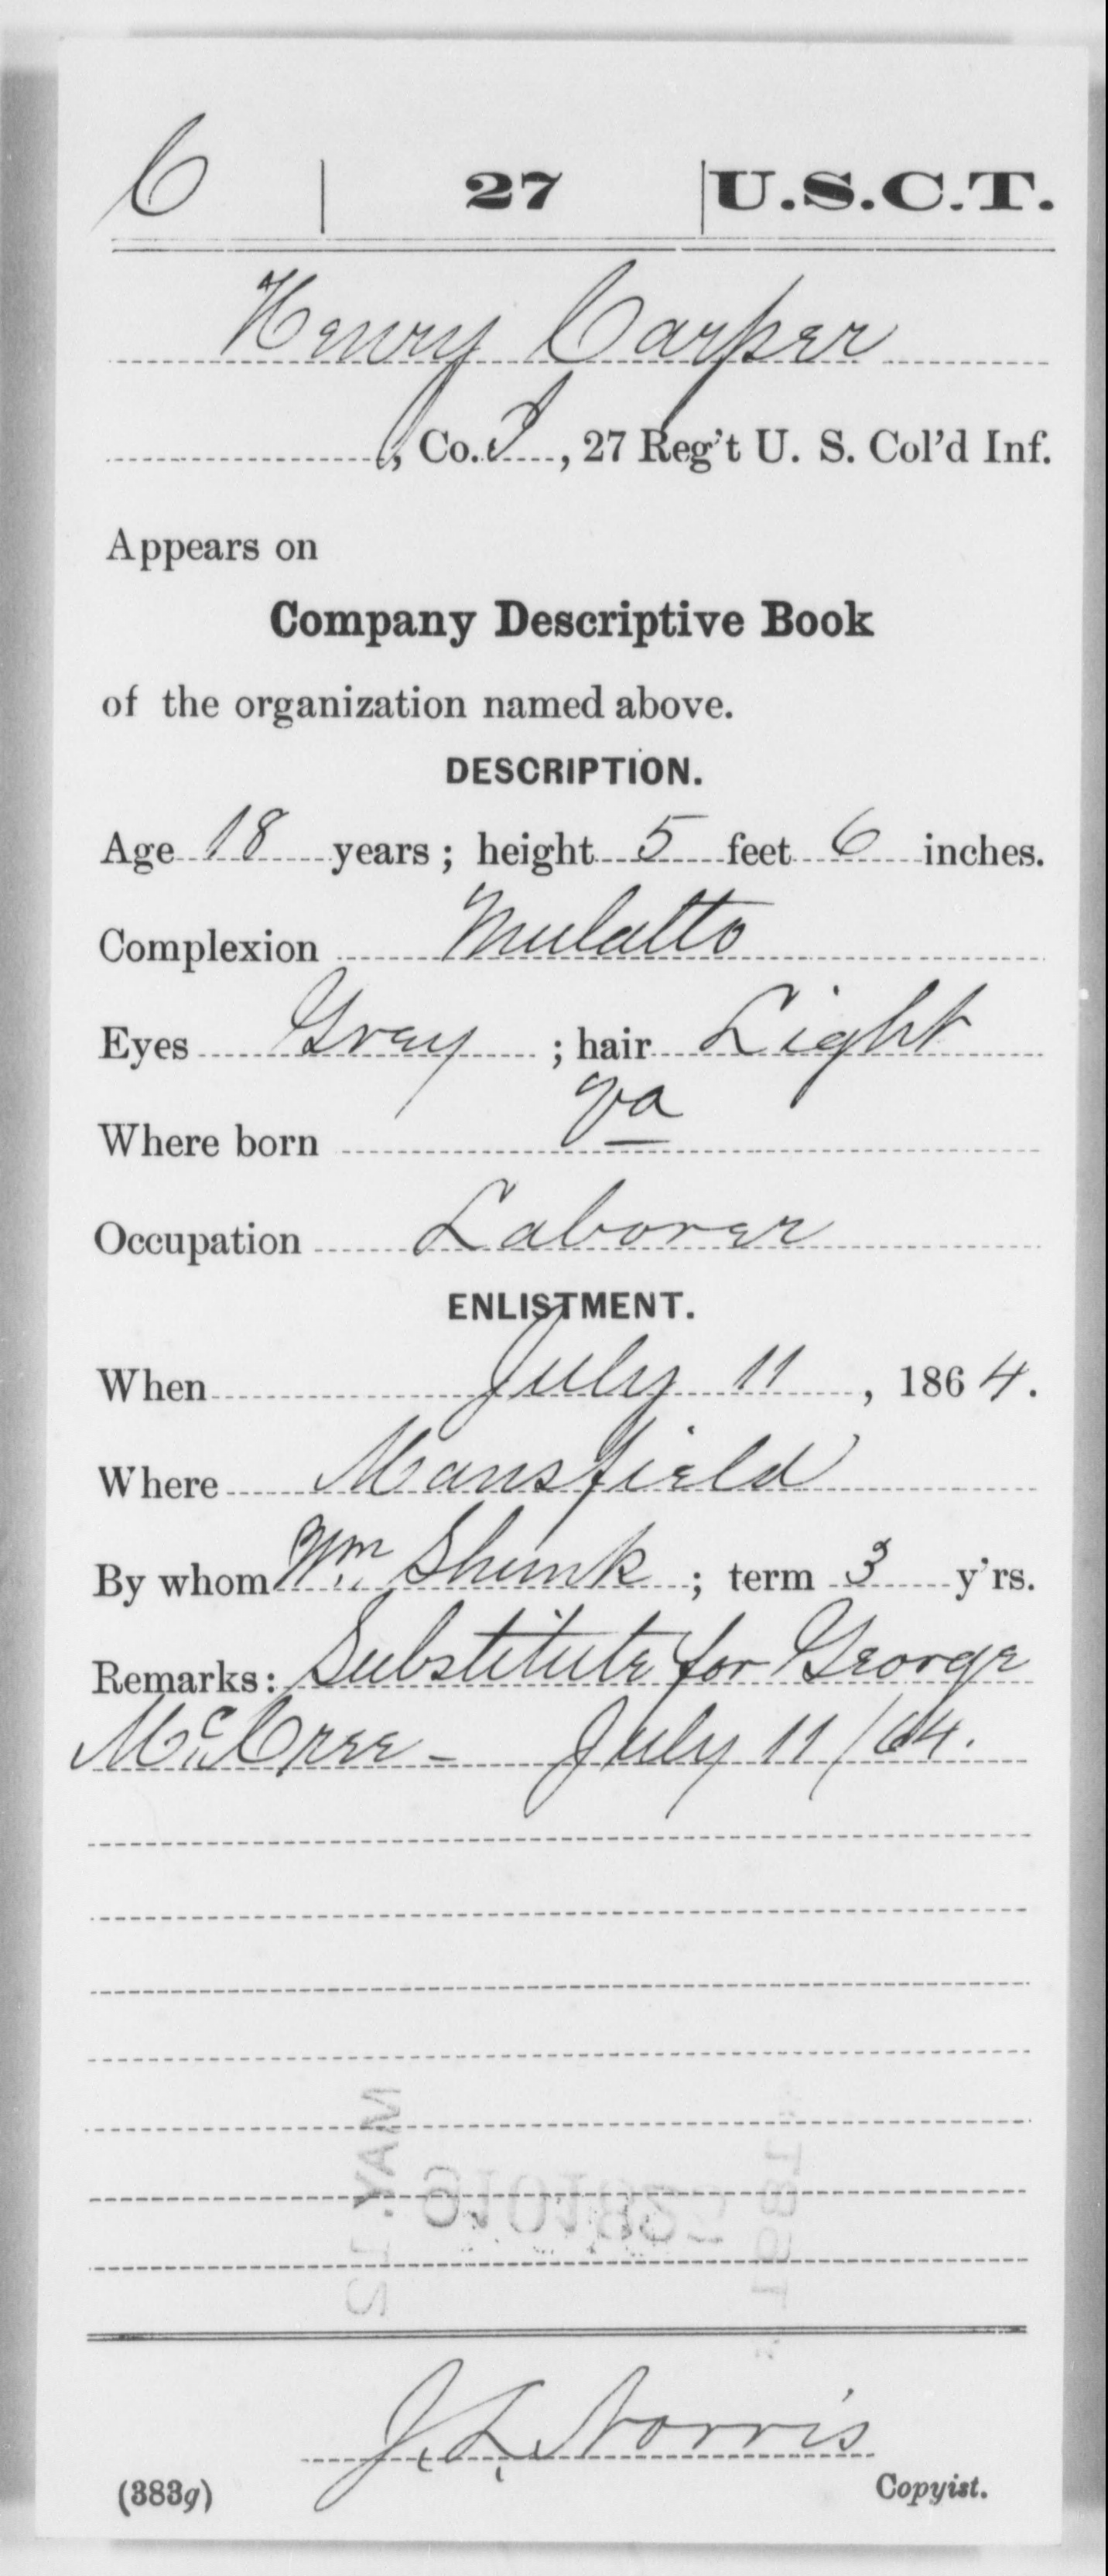 C | 27 | U.S.C.T.
Henry Carper
, Co. I, 27 Reg't U. S. Col'd Inf.
Appears on
Company Descriptive Book
of the organization named above.
DESCRIPTION.
Age 18 years; height 5 feet 6 inches.
Complexion Mulatto
Eyes Gray; hair Light
Where born Va
Occupation Laborer
ENLISTMENT.
When July 11, 1864.
Where Mansfield
By whom Wm Shunk; term 3 y'rs.
Remarks: Substitute for George
McCree - July 11/64.
J. L. Norris
(383g) Copyist.